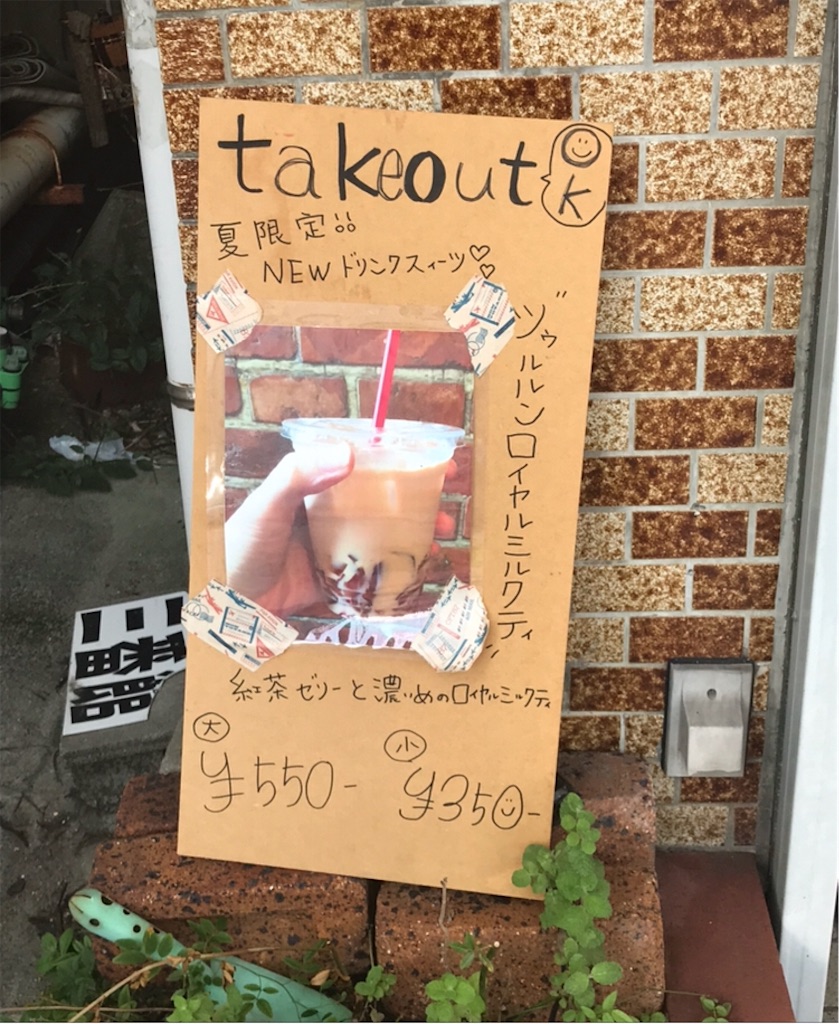 takeout OK
夏限定!!
NEWドリンクスィーツ♡♡
"ヅゥルルンロイヤルミルクティ"
紅茶ゼリーと濃いめのロイヤルミルクティ
大 ¥550-
小 ¥350-